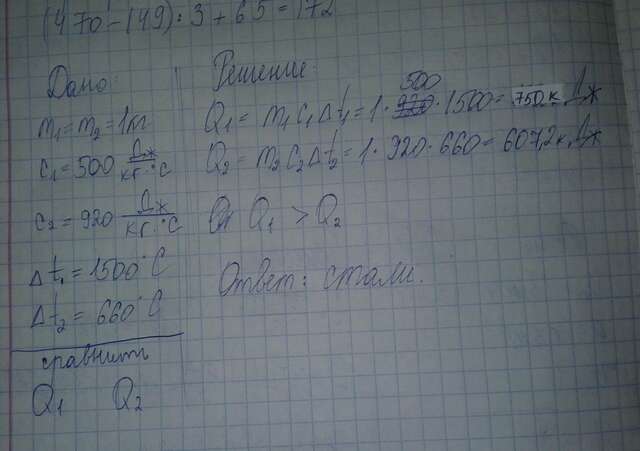 (470-149):3+65=172
Дано:
m₁=m₂=1кг
c₁=500 Дж/кг·°C
c₂=920 Дж/кг·°C
Δt₁=1500°C
Δt₂=660°C
сравнить
Q₁ Q₂
Решение:
500
Q₁= m₁c₁Δt₁=1·920·1500=750к Дж
Q₂= m₂c₂Δt₂=1·920·660=607,2к Дж
Q₁ > Q₂
Ответ: стали.